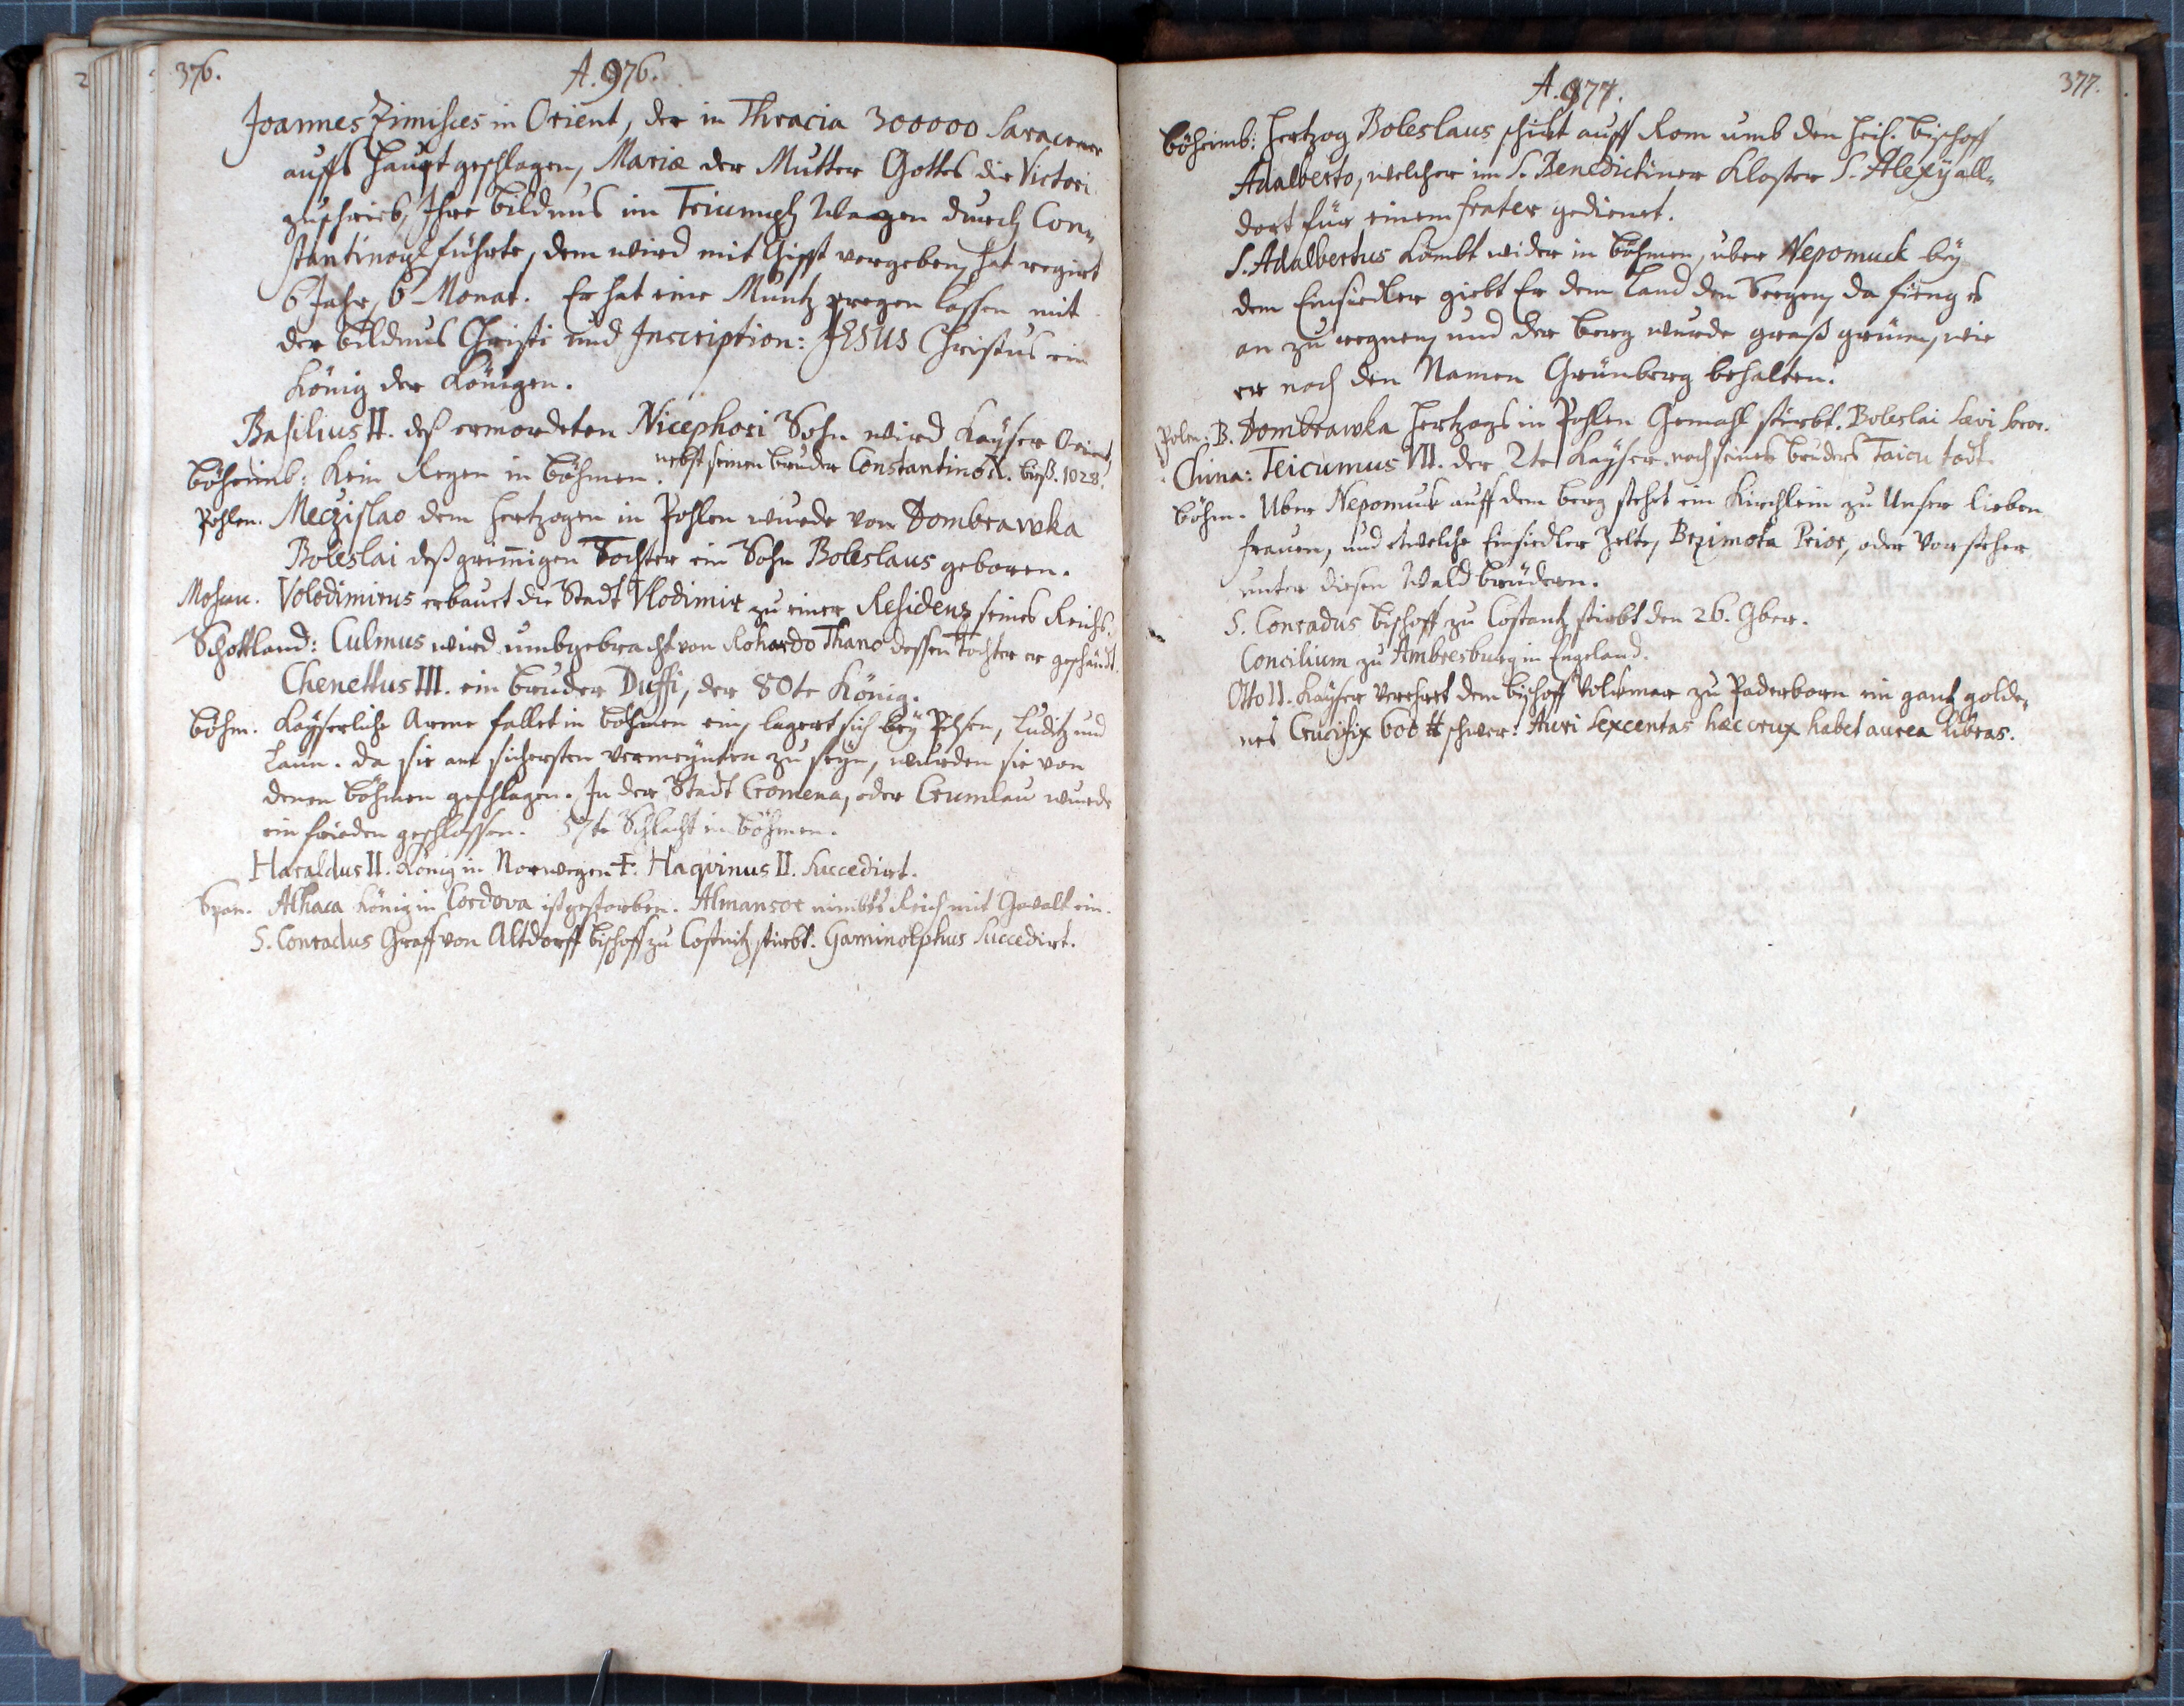 376.
A. 976.
Joannes Zimisces in Orient, der in Thracia 300000 Saracener
auffs haupt geschlagen, Mariæ der Mutter Gottes die Victori
zuschrieb, Ihre bildnus im Triumph Wagen durch Con-
stantinopl führte, dem wird mit Gifft vergeben, hat regirt
6 Jahr, 6 Monat. Er hat eine Müntz pregen lassen mit
der bildnus Christi und Inscription: JESUS Christus ein
König der Königen.
Basilius II. deß ermordeten Nicephori Sohn wird Kayser Orient,
nebst seinen bruder Constantino X. biß. 1028.
böheimb: Kein Regen in böhmen.
Pohlen. Meczislao dem Hertzogen in Pohlen wurde von Dombrawka
Boleslai deß grim̄igen Tochter ein Sohn Boleslaus geboren.
Moscau. Volodimirus erbauet die Stadt Vlodimir zu einer Residenz seines Reichs.
Schottland: Culmus wird umbgebracht von Rohardo Thano dessen Tochter er geschändt.
Chenettus III. ein bruder Duffi, der 80te König.
böhm. Kayserliche Arme fallet in böhmen ein, lagert sich bey Pilsen, Luditz und
Laun. da sie am sichersten vermeynten zu seyn, wurden sie von
denen böhmen geschlagen. In der Stadt Cromena, oder Crumlau wurde
ein frieden geschlossen. 57te Schlacht in böhmen.
Haraldus II. König in Norwegen †. Haqvinus II. succedirt.
Span. Alhaca König in Cordova ist gestorben. Almansor nimbts Reich mit Gewalt ein.
S. Conradus Graff von Altdorff bischoff zu Costnitz stirbt. Gaminolphus succedirt.
377.
A. 977.
böheimb: Hertzog Boleslaus schikt auff Rom umb den heil. bischoff
Adalberto, welcher im S. Benedictiner Kloster S. Alexij all-
dort für einem frater gedienet.
S. Adalbertus kombt wider in böhmen, über Nepomuck bey
dem Einsiedler giebt Er dem Land den Seegen, da fieng es
an zu regnen, und der berg wurde graß grün, wie
er noch den Namen Grünberg behalten.
Polen. B. Dombrawka Hertzogs in Pohlen Gemahl stirbt. Boleslai Sævi Soror.
China: Teicumus VII. der 2te Kayser nach seines bruders Taicu todt.
böhm. Uber Nepomuk auff dem berg stehet ein Kirchlein zu Unser lieben
frauen, und etwelche Einsiedler Zelte, Brzimota Prior, oder Vorsteher
unter diesen Waldbrüdern.
S. Conradus bischoff zu Costantz stirbt den 26. 9ber.
Concilium zu Ambresburg in Engeland.
Otto II. Kayser verehret dem bischoff Volkmar zu Paderborn ein gantz golde-
nes Crucifix 600 ℔ schwer: Auri sexcentas hæc crux habet aurea libras.